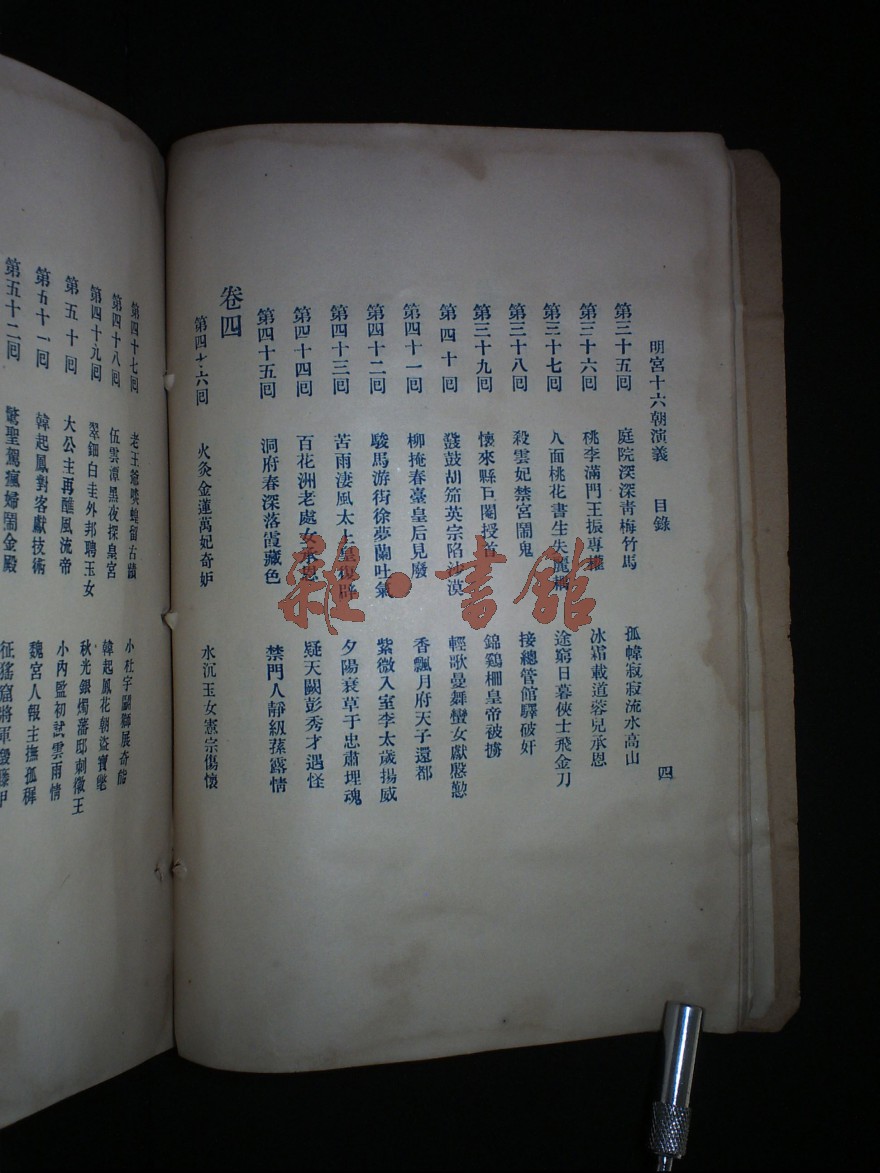 明宮十六朝演義　目錄　四
第三十五囘　庭院深深靑梅竹馬　孤幃寂寂流水高山
第三十六囘　桃李滿門王振專權　冰霜載道蓉兒承恩
第三十七囘　人面桃花書生失麗耦　途窮日暮俠士飛金刀
第三十八囘　殺雲妃禁宮鬧鬼　接總管館驛破奸
第三十九囘　懷來縣巨閹授首　錦鷄柵皇帝被擄
第四十囘　鼕鼓胡笳英宗陷沙漠　輕歌曼舞蠻女獻慇懃
第四十一囘　柳掩春臺皇后見廢　香飄月府天子還都
第四十二囘　駿馬游街徐夢蘭吐氣　紫微入室李太歲揚威
第四十三囘　苦雨淒風太上皇復辟　夕陽衰草于忠肅埋魂
第四十四囘　百花洲老處女承恩　疑天闕彭秀才遇怪
第四十五囘　洞府春深落霞藏色　禁門人靜級蓀露情
卷四
第四十六囘　火灸金蓮萬妃奇妒　水沉玉女憲宗傷懷
第四十七囘　老王爺啖蝗留古蹟　小杜宇鬭獅展奇能
第四十八囘　伍雲潭黑夜探皇宮　韓起鳳花朝盜寶氅
第四十九囘　翠鈿白圭外邦聘玉女　秋光銀燭藩邸刺徽王
第五十囘　大公主再醮風流帝　小內監初試雲雨情
第五十一囘　韓起鳳對客獻技術　魏宮人報主撫孤穉
第五十二囘　驚聖駕瘋婦鬧金殿　征猺窟將軍毀藤甲
雜·書館